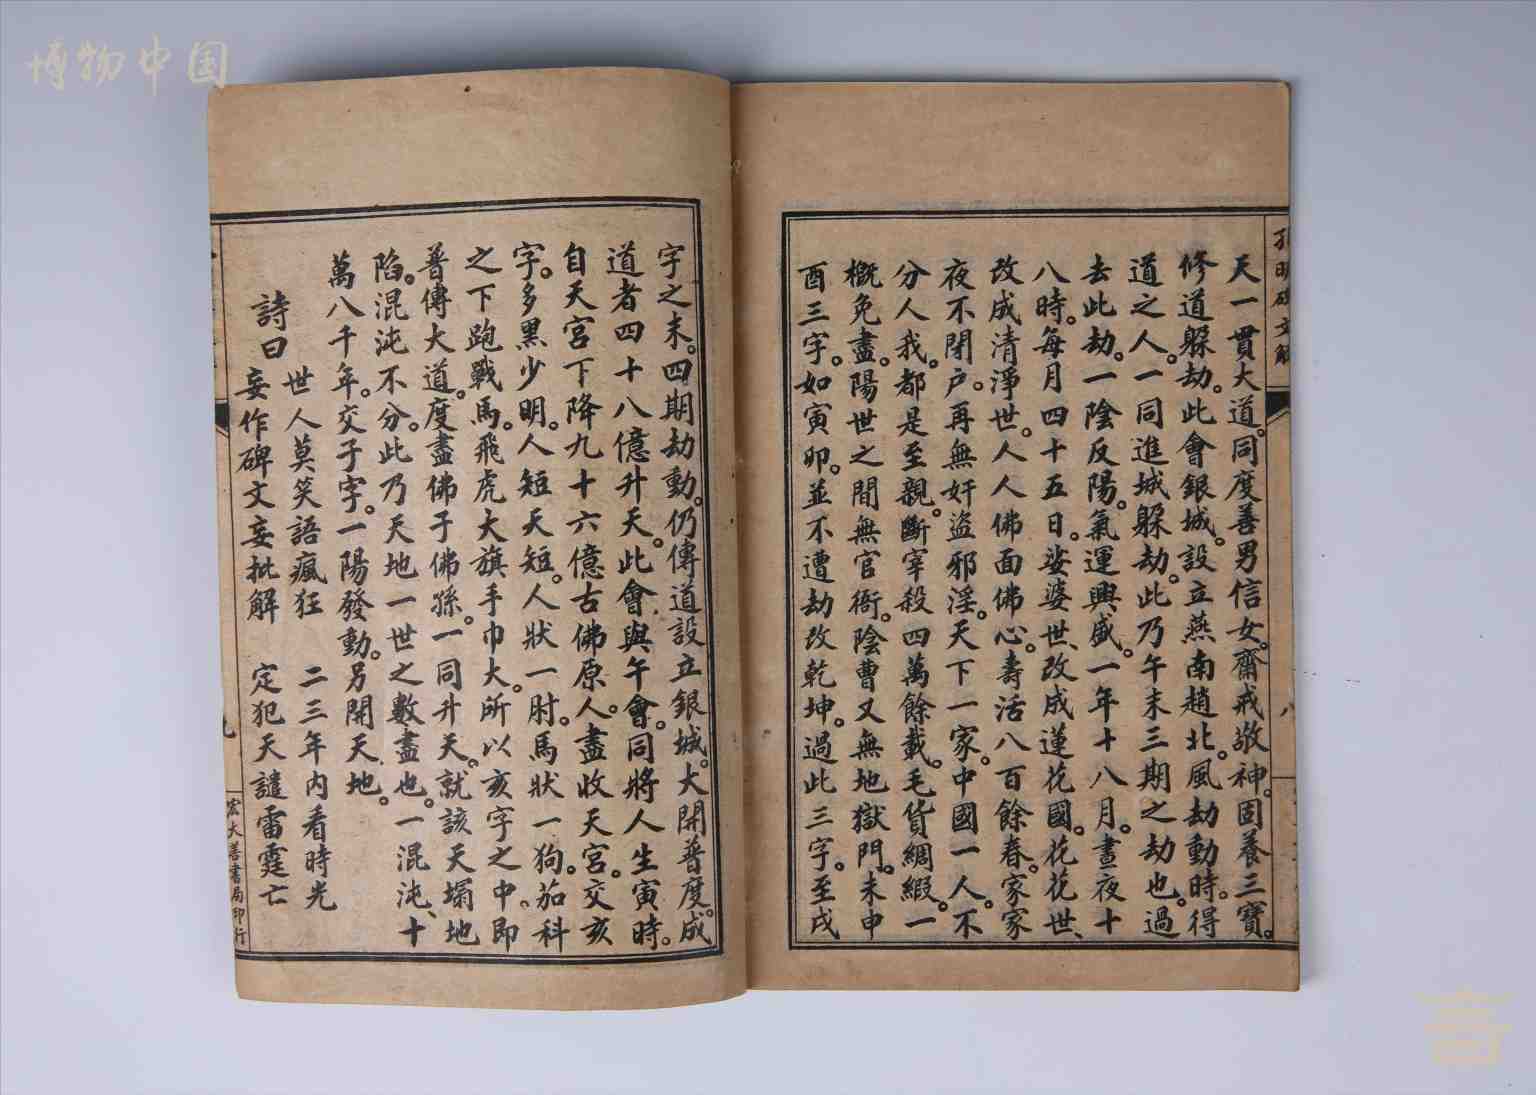 博物中国
孔明碑文解
八
天一貫大道。同度善男信女。齋戒敬神。固養三寶。
修道躲劫。此會銀城。設立燕南趙北。風劫動時。得
道之人。一同進城躲劫。此乃午末三期之劫也。過
去此劫。一陰反陽。氣運興盛。一年十八月。晝夜十
八時。每月四十五日。娑婆世、改成蓮花國。花花世、
改成清淨世。人人佛面佛心。壽活八百餘春。家家
夜不閉户。再無奸盜邪淫。天下一家。中國一人。不
分人我。都是至親。斷宰殺四萬餘載。毛貨綢緞。一
概免盡。陽世之間無官衙。陰曹又無地獄門。未申
酉三字。如寅卯。並不遭劫改乾坤。過此三字。至戌
字之末。四期劫動。仍傳道設立銀城。大開普度。成
道者四十八億升天。此會與午會。同將人生寅時。
自天宮下降九十六億古佛原人。盡收天宮。交亥
字。多黑少明。人短天短。人狀一肘。馬狀一狗。茄科
之下跑戰馬。飛虎大旗手巾大。所以亥字之中。即
普傳大道。度盡佛子佛孫。一同升天。就該天塌地
陷。混沌不分。此乃天地一世之數盡也。一混沌、十
萬八千年。交子字。一陽發動。另開天地。
詩曰
世人莫笑語瘋狂 二三年內看時光
妄作碑文妄批解 定犯天譴雷霆亡
九
宏大善書局印行